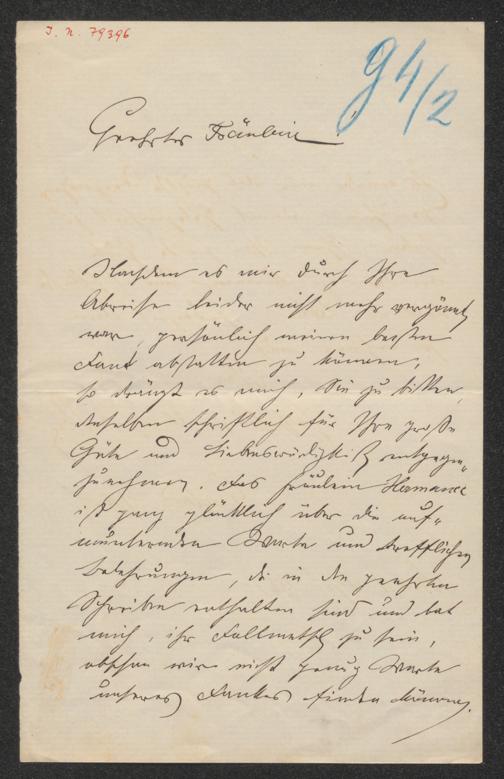 I. N. 79396
94/2
Geehrtes Fräulein
Nachdem es mir durch Ihre
Abreise leider nicht mehr vergönnt
war, persönlich meinen besten
Dank abstatten zu können,
so drängt es mich, Sie zu bitten,
denselben schriftlich für Ihre große
Güte und Liebenswürdigkeit entgegen-
zunehmen. Das Fräulein Hermance
ist ganz glücklich über die auf-
munternden Worte und trefflichen
Belehrungen, die in den geehrten
Schreiben enthalten sind und bat
mich, ihr Dollmetsch zu sein,
obschon wir nicht genug Worte
unseres Dankes finden können.